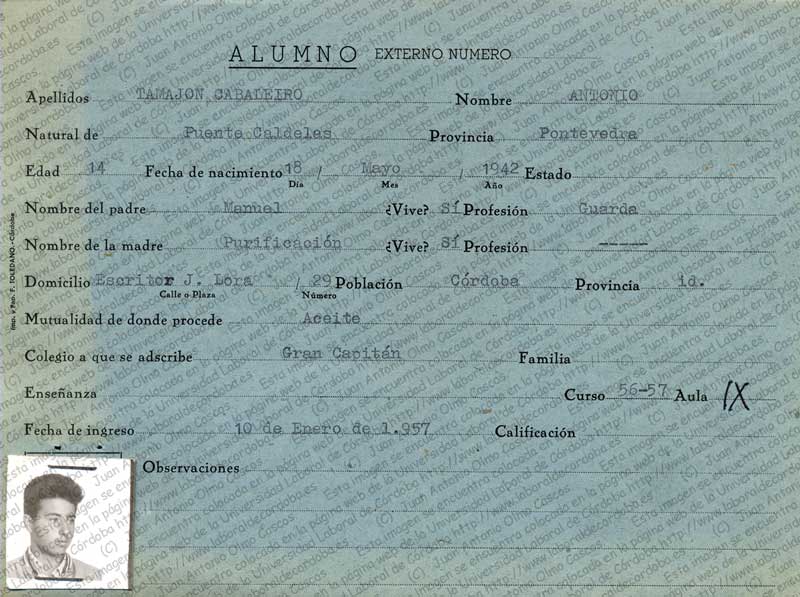 ALUMNO EXTERNO NUMERO
Apellidos TAMAJON CABALEIRO Nombre ANTONIO
Natural de Puente Caldelas Provincia Pontevedra
Edad 14 Fecha de nacimiento 18 / Mayo / 1942 Estado
Día Mes Año
Nombre del padre Manuel ¿Vive? Sí Profesión Guarda
Nombre de la madre Purificación ¿Vive? Sí Profesión ----
Domicilio Escritor J. Lora / 29 Población Córdoba Provincia id.
Calle o Plaza Número
Mutualidad de donde procede Aceite
Colegio a que se adscribe Gran Capitán Familia
Enseñanza Curso 56-57 Aula IX
Fecha de ingreso 10 de Enero de 1.957 Calificación
Observaciones
TOLEDANO.-Córdoba
Esta imagen se encuentra colocada en la página web de la Universidad Laboral de Córdoba http://www.universidadlaboraldecordoba.es (C) Juan Antonio Olmo Cascos.